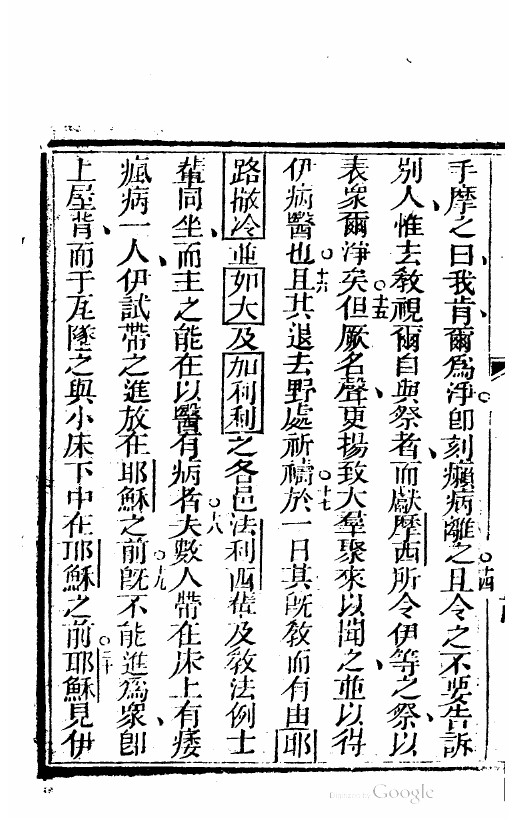 手摩之曰我肯爾爲淨。即刻癩病離之。十四且令之不要告訴
別人惟去教視爾自與祭者而獻摩西所令伊等之祭以
表眾爾淨矣。十五但厥名聲更揚致大羣聚來以聞之並以得
伊病醫也。十六且其退去野處祈禱。十七於一日其既教而有由耶
路撒冷並如大及加利利之各邑法利西輩及教法例士
輩同坐而主之能在以醫有病者。十八夫數人帶在床上有痿
瘋病一人伊試帶之進放在耶穌之前。十九既不能進爲眾即
上屋背而于瓦墜之與小床下中在耶穌之前。二十耶穌見伊
Digitized by Google